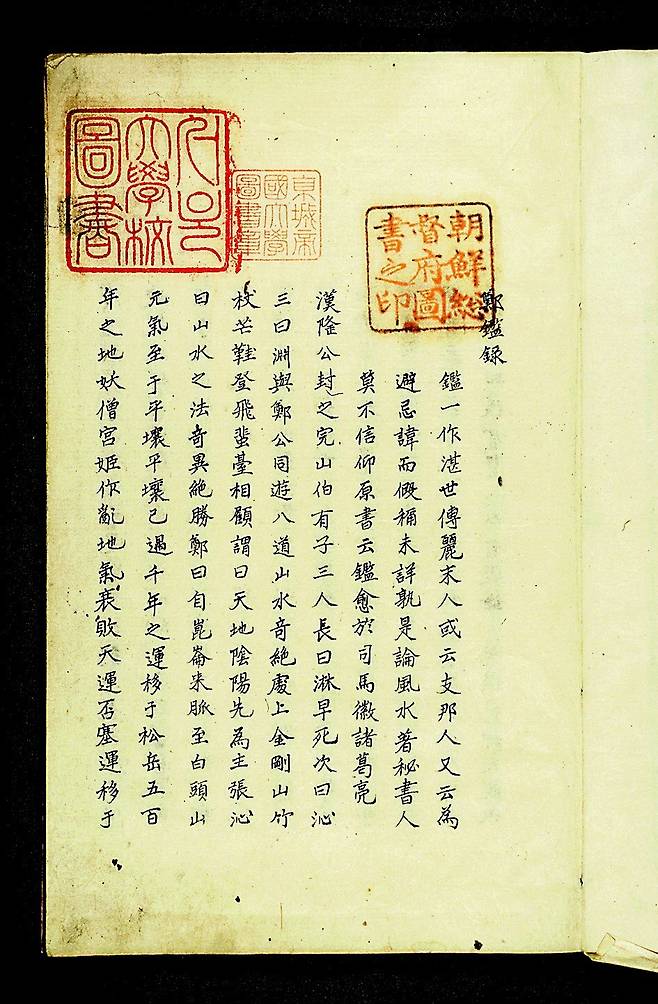 朝鮮総
督府圖
書之印
京城帝
國大學
圖書章
서울
大學校
圖書
鄭鑑録
鑑一作湛世傳麗末人或云支那人又云為
避忌諱而假稱未詳孰是論風水著秘書人
莫不信仰原書云鑑愈於司馬徽諸葛亮
漢隆公封之完山伯有子三人長曰淋早死次曰沁
三曰淵與鄭公同遊八道山水奇絶處上金剛山竹
杖芒鞋登飛蜚臺相顧謂曰天地陰陽先為主張沁
曰山水之法奇異絶勝鄭曰自崑崙来脈至白頭山
元氣至于平壤平壤已過千年之運移于松岳五百
年之地妖僧宮姬作亂地氣衰敗天運否塞運移于